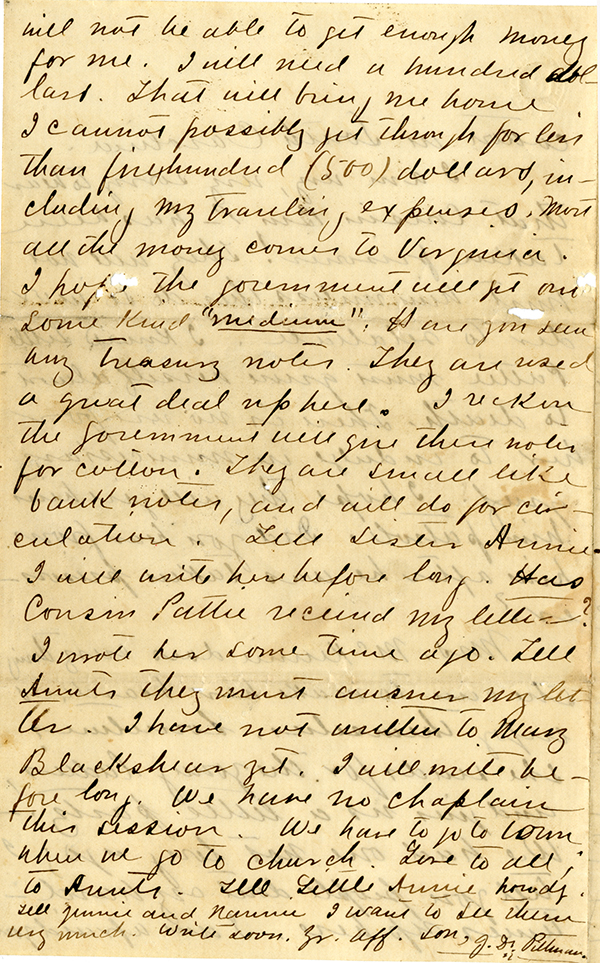 will not be able to get enough money
for me. I will need a hundred dol-
lars. That will bring me home
I cannot possibly get through for less
than five hundred (500) dollars, in-
cluding my traveling expenses. Most
all the money comes to Virginia.
I hope the government will get out
some kind "medium". Have you seen
any treasury notes. They are used
a great deal up here. I reckon
the government will give these notes
for cotton. They are small like
bank notes, and will do for cir-
culation. Tell Sister Annie
I will write her before long. Has
Cousin Pattie receivd my letter?
I wrote her some time ago. Tell
Aunts they must answer my let
ter. I have not written to Mary
Blackshear yet. I will write be-
fore long. We have no chaplain
this session. We have to go to town
when we go to church. Love to all,
to Aunts. Tell Little Annie howdy.
Tell Jinnie and Nannie I want to see them
very much. Write soon. Yr. aff. son, J. D. Pittman.